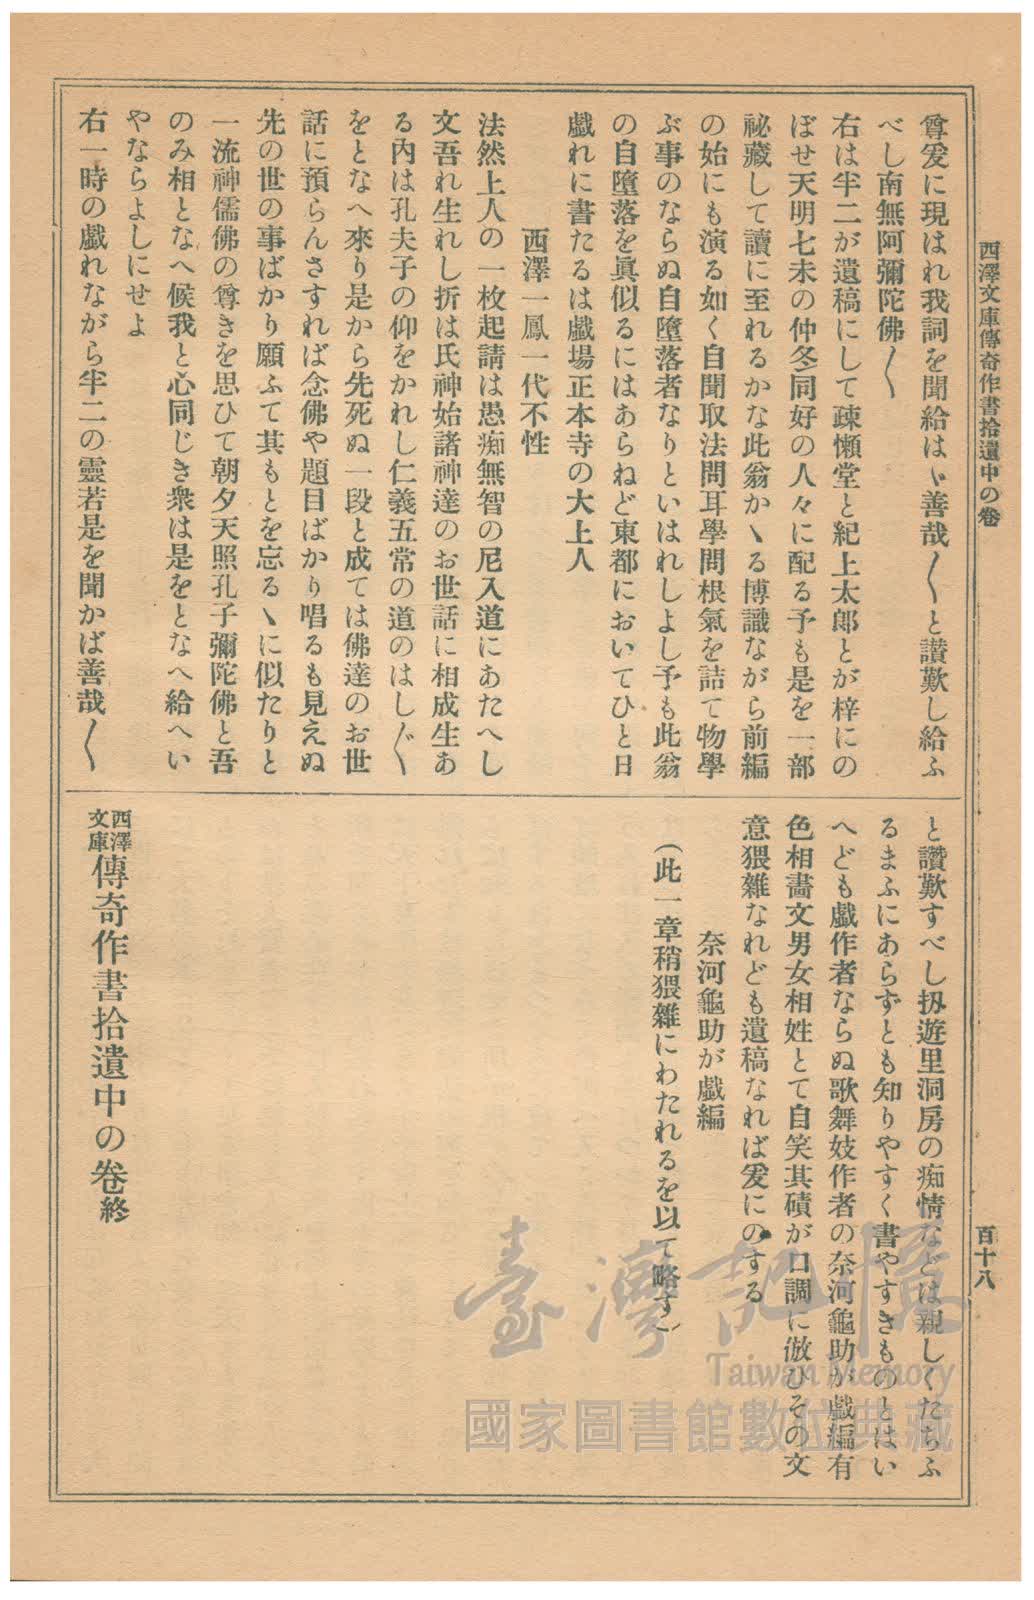 西澤文庫傳奇作書拾遺中の卷
百十八
尊爰に現はれ我詞を聞給はゞ善哉〱と讃歎し給ふ
べし南無阿彌陀佛〱
右は半二が遺稿にして疎懶堂と紀上太郎とが梓にの
ぼせ天明七未の仲冬同好の人々に配る予も是を一部
祕藏して讀に至れるかな此翁かヽる博識ながら前編
の始にも演る如く自聞取法問耳學問根氣を詰て物學
ぶ事のならぬ自墮落者なりといはれしよし予も此翁
の自墮落を眞似るにはあらねど東都においてひと日
戯れに書たるは戯場正本寺の大上人
西澤一鳳一代不性
法然上人の一枚起請は愚痴無智の尼入道にあたへし
文吾れ生れし折は氏神始諸神達のお世話に相成生あ
る內は孔夫子の仰をかれし仁義五常の道のはし〲
をとなへ來り是から先死ぬ一段と成ては佛達のお世
話に預らんさすれば念佛や題目ばかり唱るも見えぬ
先の世の事ばかり願ふて其もとを忘るヽに似たりと
一流神儒佛の尊きを思ひて朝夕天照孔子彌陀佛と吾
のみ相となへ候我と心同じき衆は是をとなへ給へい
やならよしにせよ
右一時の戯れながら半二の靈若是を聞かば善哉〱
と讚歎すべし扨遊里洞房の痴情などは親しくたちふ
るまふにあらずとも知りやすく書やすきものとはい
へども戯作者ならぬ歌舞妓作者の奈河龜助が戯編有
色相畵文男女相姓とて自笑其磧が口調に倣ひその文
意猥雜なれども遺稿なれば爰にのする
奈河龜助が戯編
(此一章稍猥雜にわたれるを以て略す)
西澤文庫傳奇作書拾遺中の卷終
臺灣記憶
Taiwan Memory
國家圖書館數位典藏